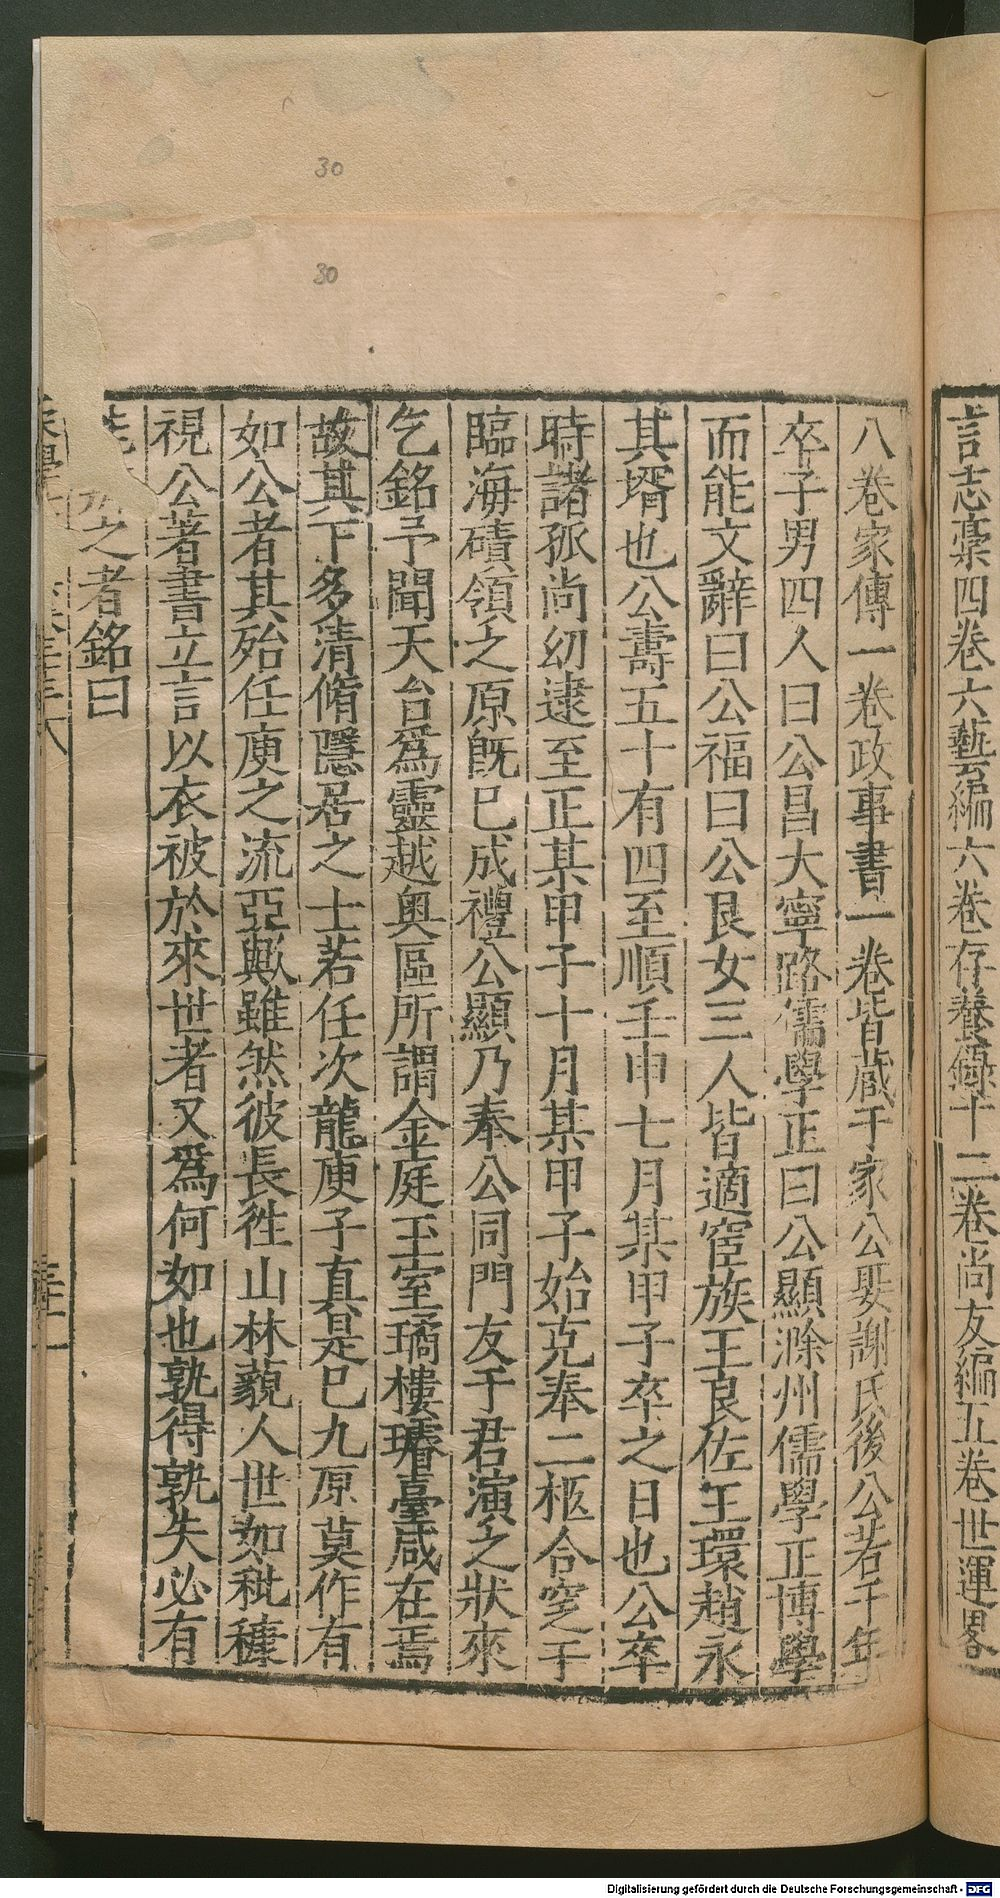 言志稾四卷六藝編六卷存養錄十二卷尚友編五卷世運畧
八卷家傳一卷政事書一卷皆蔵于家公娶謝氏後公若干年
卒子男四人曰公昌大寧路儒學正曰公顯滁州儒學正博學
而能文辭曰公福曰公艮女三人皆適宦族王良佐王環趙永
其壻也公壽五十有四至順壬申七月某甲子卒之日也公卒
時諸孤尚幼逮至正某甲子十月某甲子始克奉二柩合窆于
臨海磧領之原旣已成禮公顯乃奉公同門友于君演之狀來
乞銘予聞天台爲靈越奥區所謂金庭玉室璚樓璿臺咸在焉
故其下多清脩隱居之士若任次龍庾子真是已九原莫作有
如公者其殆任庾之流亞歟雖然彼長徃山林藐人世如秕糠
視公著書立言以衣被於來世者又爲何如也孰得孰失必有
之者銘曰
30
30
Digitalisierung gefördert durch die Deutsche Forschungsgemeinschaft - DFG